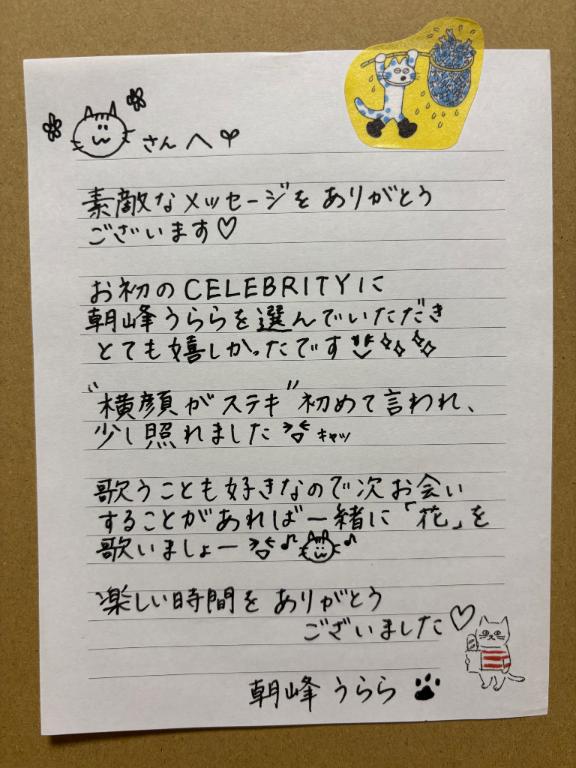 さんへ
素敵なメッセージをありがとう
ございます♡
お初のCELEBRITYに
朝峰うららを選んでいただき
とても嬉しかったです
"横顔がステキ"初めて言われ、
少し照れました キャッ
歌うことも好きなので次お会い
することがあれば一緒に「花」を
歌いましょー♪♪
楽しい時間をありがとう
ございました♡
朝峰うらら